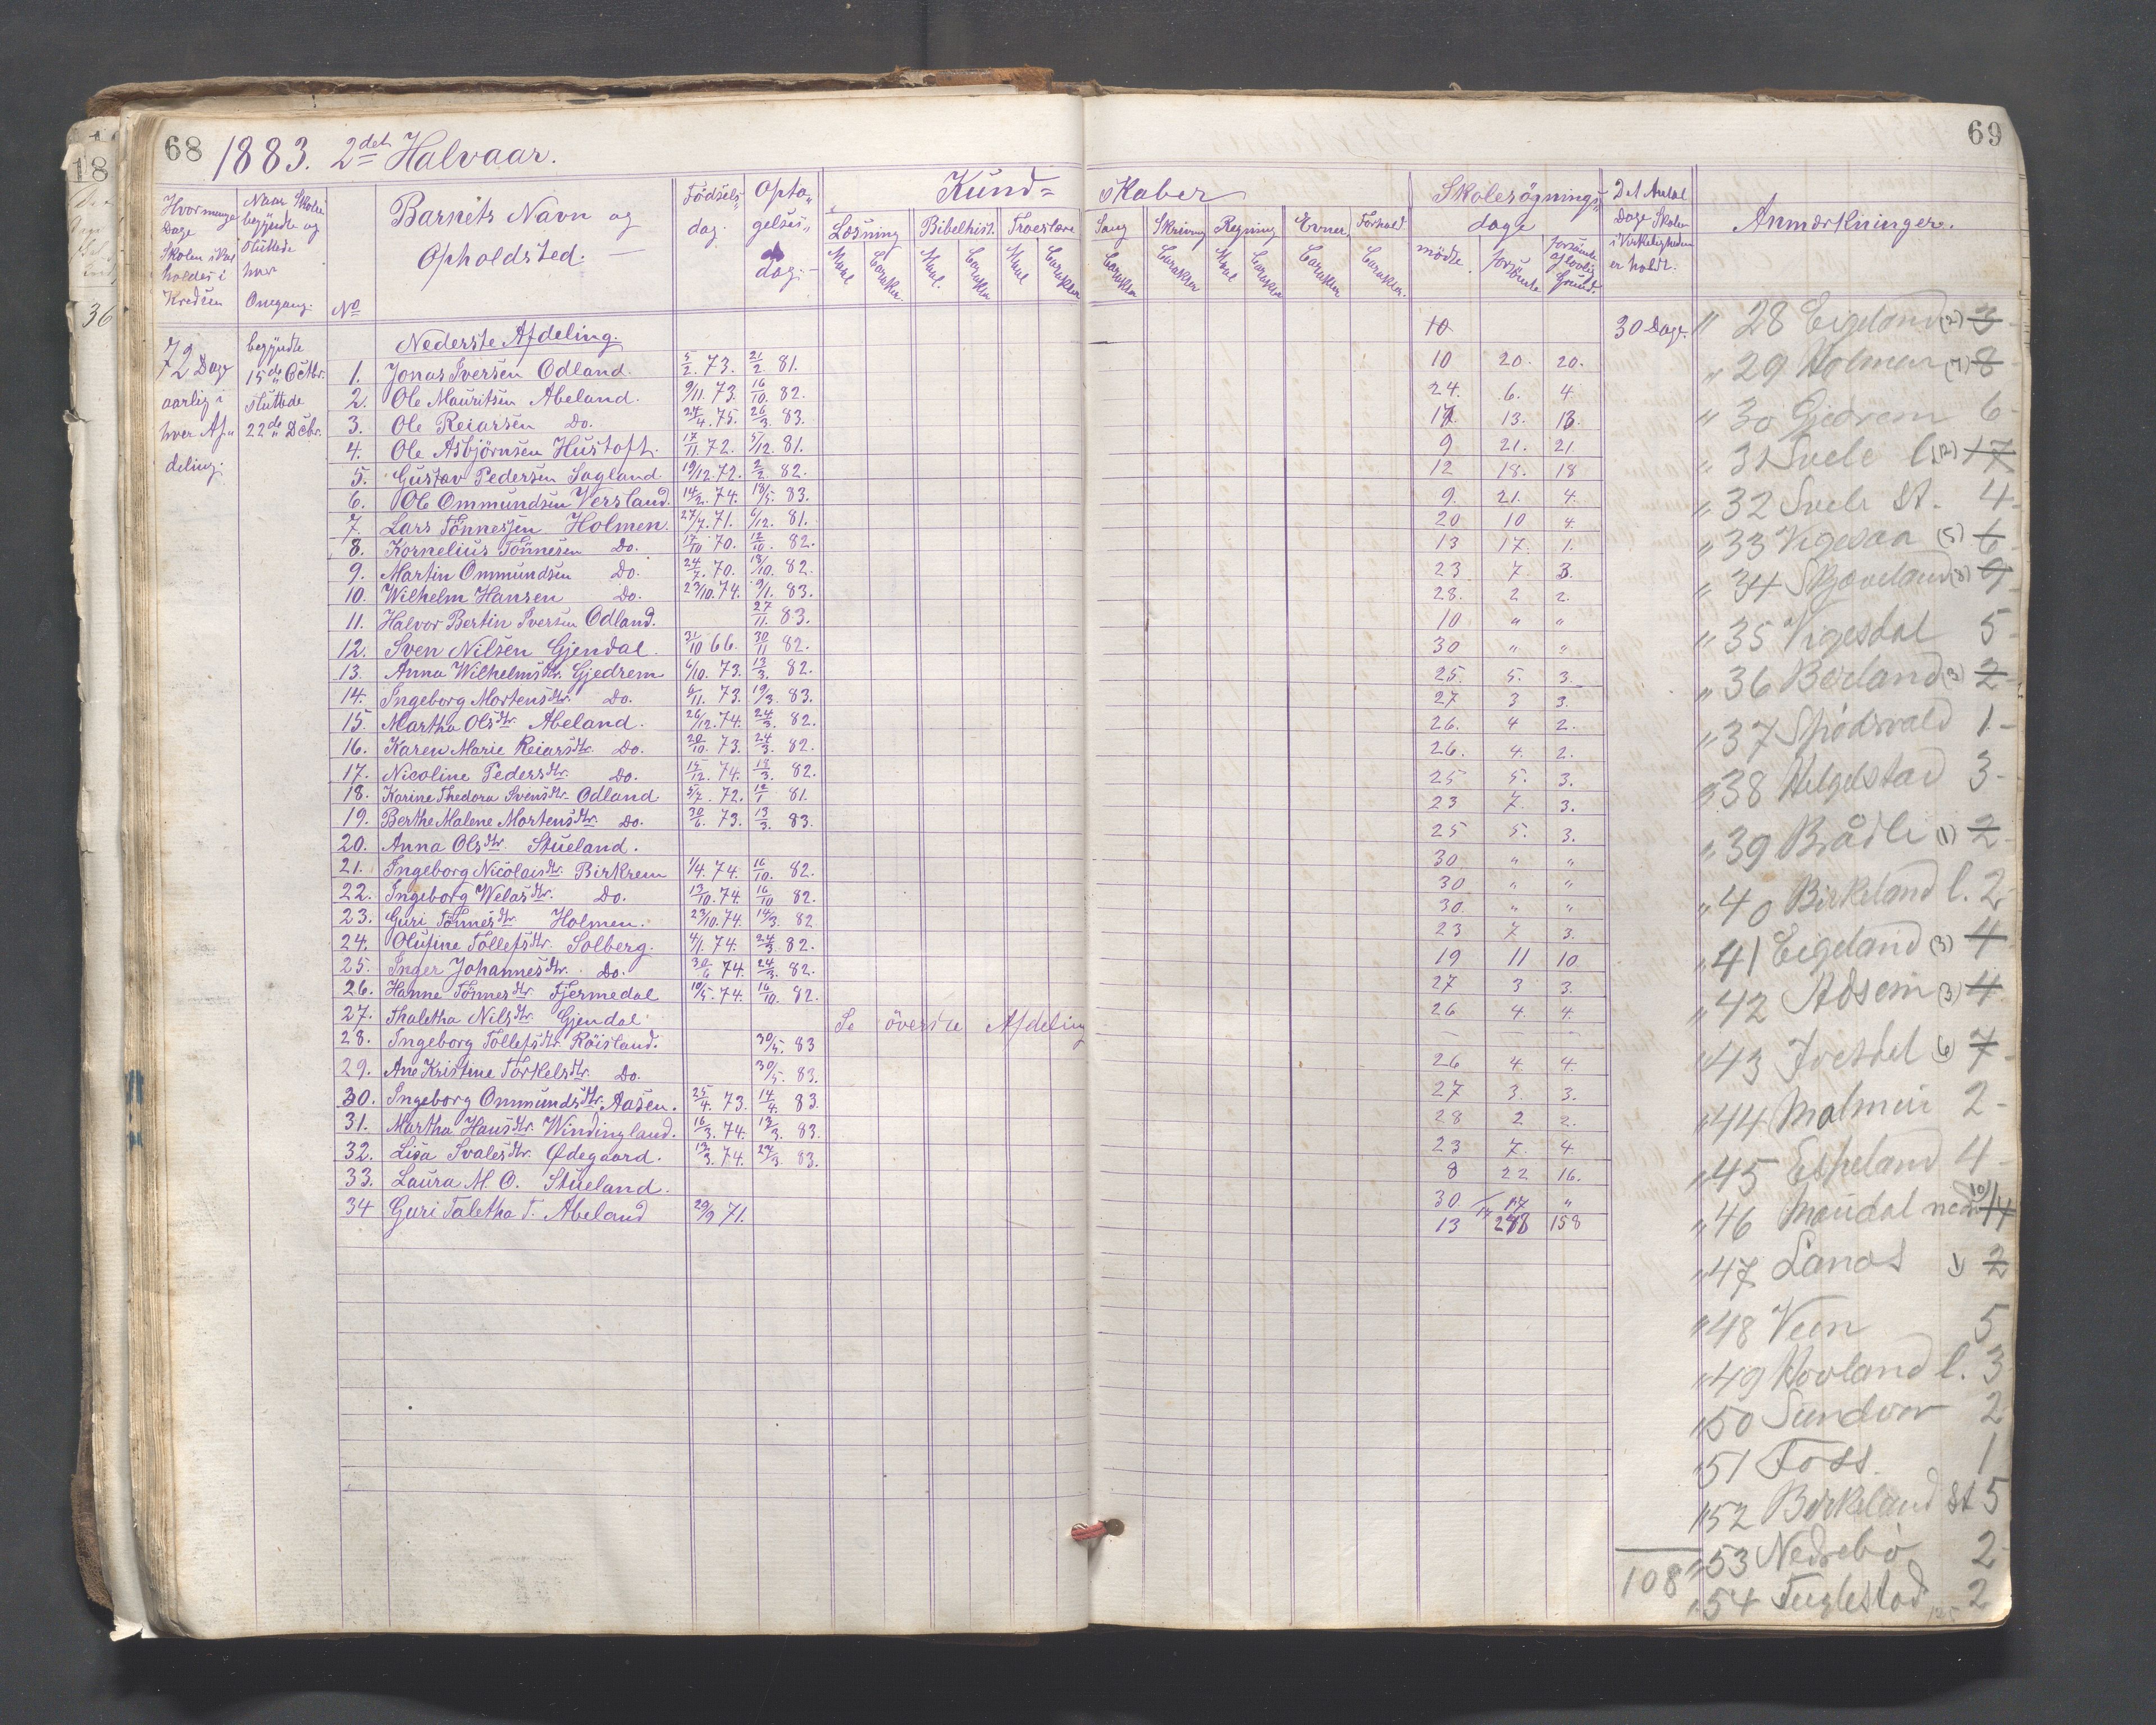 68 1883. 2det Halvaar. 69
Hvormange Dage Skolen skal holdes i Kredsen
Naar Skolen begyndte og sluttede hver Omgang.
No
Barnets Navn og Opholdsted.
Födsels dag.
Opta gelses dag.
Kund= skaber
Læsning Bibelhist. Troeslære Sang Skrivning Regning Evner. Forhold
Maal Carakter. Maal. Carakter Maal Carakter Carakter Carakter Maal Carakter Carakter Carakter.
Skolesögnings dage
mödte. forsömte forsömte af lovlig Grund.
Det Antal Dage Skolen i Virkeligheden er holdt.
Anmærkninger.
72 Dage aarlig i hver Af= deling.
begyndte 15de Octbr. sluttede 22de Decbr.
Nederste Afdeling. 10 30 Dage. " 28 Eigeland (2) 3
1. Jonas Iversen Odland. 5/2. 73. 21/2 81. 10 20. 20.
2. Ole Mauritsen Abeland. 9/11. 73. 16/10. 82. 24. 6. 4
3. Ole Reiarsen Do. 24/4. 75. 26/3. 83. 17 13. 13.
4. Ole Asbjörnsen Hustoft. 17/11. 72. 5/12. 81. 9 21. 21
5. Gustav Pedersen Sagland. 19/12. 72. 2/2. 82. 12 18. 18
6. Ole Ommundsen Versland. 14/2. 74. 18/5. 83. 9. 21. 4.
7. Lars Tönnessen Holmen. 27/7. 71. 6/12. 81. 20 10 4.
8. Kornelius Tönnesen Do. 17/10 70. 12/10. 82. 13 17. 1.
9. Martin Ommundsen Do. 24/7. 70. 18/10. 82. 23 7. 3.
10. Wilhelm Hansen Do. 23/10. 74. 9/1. 83. 28. 2 2.
11. Halvor Bertin Iversen Odland. 27/11. 83. 10 " "
12. Sven Nilsen Gjendal. 31/10 66. 30/11 82. 30 " "
13. Anna Wilhelmsdtr. Gjedrem 6/10. 73. 13/3. 82. 25. 5. 3.
14. Ingeborg Mortensdtr. Do. 6/11. 73. 19/3. 83. 27 3 3.
15. Martha Olsdtr. Abeland. 26/12. 74. 24/3. 82. 26. 4 2.
16. Karen Marie Reiarsdtr. Do. 20/10. 73. 24/3. 82. 26. 4. 2.
17. Nicoline Pedersdtr. Do. 15/12. 74. 13/3. 82. 25 5. 3.
18. Karine Thedora Svensdtr. Odland. 5/7. 72. 12/1 81. 23 7. 3.
19. Berthe Malene Mortensdtr. Do. 30/6. 73. 13/3. 83. 25 5. 3.
20. Anna Olsdtr. Stueland. 30 " "
21. Ingeborg Nicolaisdtr. Birkrem 1/4. 74. 16/10. 82. 30 " "
22. Ingeborg Welasdtr. Do. 13/10. 74. 16/10 82. 30. " "
23. Guri Tönnesdtr. Holmen. 23/10. 74. 14/3. 82 23 7 3.
24. Olufine Tollefsdtr. Solberg. 4/1. 74. 24/3. 82. 19 11 10
25. Inger Johannesdtr. Do. 30/6 74. 24/3. 82. 27 3 3.
26. Hanne Tönnesdtr. Fjermedal 10/5. 74. 16/10. 82. 26 4. 4.
27. Thaletha Nilsdtr. Gjendal Se överste Afdeling
28. Ingeborg Tollefsdtr. Röisland. 30/5. 83 26 4 4.
29. Ane Kristine Torkelsdtr. Do. 30/5. 83. 27 3. 3.
30. Ingeborg Ommundsdtr. Aasen. 25/4. 73. 14/4. 83. 28 2 2.
31. Martha Hansdtr. Windingland. 16/3. 74. 13/3. 83. 23 7. 4.
32. Lisa Svalesdtr. Ødegaard. 13/3. 74. 27/3. 83. 8 22 16.
33. Laura M. O. Stueland. 30. "
34 Guri Taletha T. Abeland 29/9 71. 13 17 158
" 29 Holmen (7) 8
" 30 Gjedrem 6
" 31 Svele l. (12) 17
" 32 Svele st. 4
" 33 Vigesaa (5) 6
" 34 Skjæveland (8) 9
" 35 Vigesdal 5
" 36 Berland (3) 2
" 37 Spödsvald 1
" 38 Helgelstad 3
" 39 Brådli (1) 2
" 40 Birkeland l. 2
" 41 Eigeland (3) 4
" 42 Adsem (3) 4
" 43 Ivesdal 6 7
" 44 Malmein 2
" 45 Espeland 4
" 46 Maudal ned 10 14
" 47 Lanes 1) 2
" 48 Veen 5
" 49 Hovland l. 3
" 50 Sundvor 2
" 51 Foss 1
" 52 Birkeland st 5
" 53 Nedrebö 2
108 " 54 Fuglestad 2